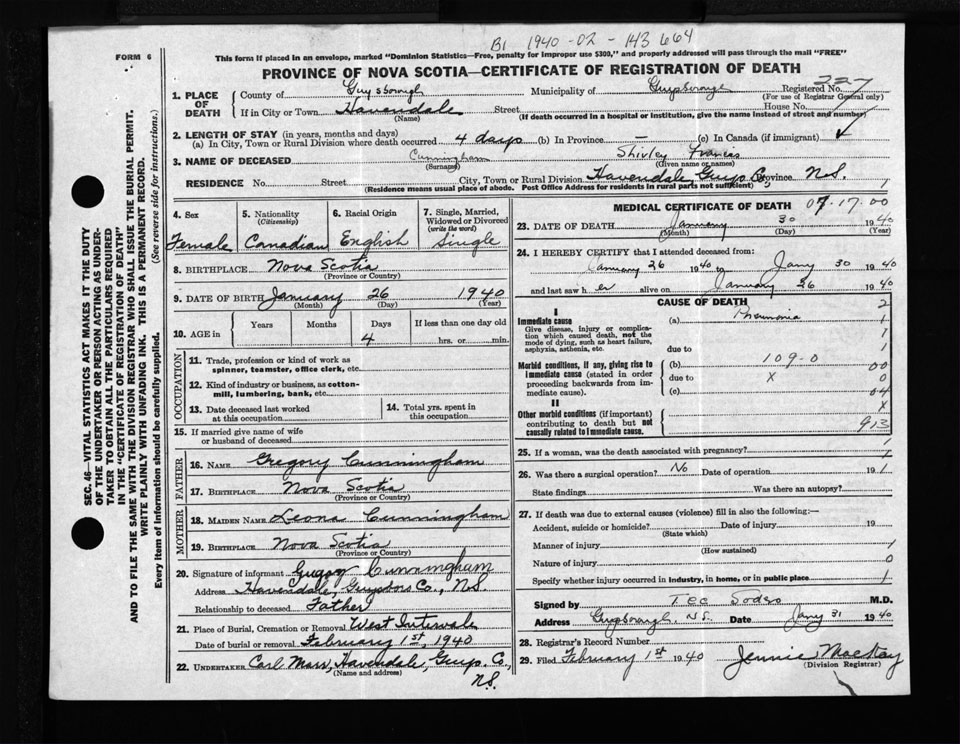 B1 1940-02-143664
FORM 6
This form if placed in an envelope, marked "Dominion Statistics—Free, penalty for improper use $300," and properly addressed will pass through the mail "FREE"
PROVINCE OF NOVA SCOTIA—CERTIFICATE OF REGISTRATION OF DEATH
227
1. PLACE OF DEATH
County of Guysborough Municipality of Guysborough Registered No.
(For use of Registrar General only)
If in City or Town Havendale Street House No.
(Name) (If death occurred in a hospital or institution, give the name instead of street and number)
2. LENGTH OF STAY (in years, months and days)
(a) In City, Town or Rural Division where death occurred 4 days (b) In Province — (c) In Canada (if immigrant)
3. NAME OF DECEASED Cunningham Shirley Francis
(Surname) (Given name or names)
RESIDENCE No. Street City, Town or Rural Division Havendale Guys Co., Province N.S.
(Residence means usual place of abode. Post Office Address for residents in rural parts not sufficient)
SEC. 46—VITAL STATISTICS ACT MAKES IT THE DUTY
OF THE UNDERTAKER OR PERSON ACTING AS UNDER-
TAKER TO OBTAIN ALL THE PARTICULARS REQUIRED
IN THE "CERTIFICATE OF REGISTRATION OF DEATH"
AND TO FILE THE SAME WITH THE DIVISION REGISTRAR WHO SHALL ISSUE THE BURIAL PERMIT.
WRITE PLAINLY WITH UNFADING INK. THIS IS A PERMANENT RECORD.
Every item of Information should be carefully supplied. (See reverse side for instructions.)
4. Sex
Female
5. Nationality
(Citizenship)
Canadian
6. Racial Origin
English
7. Single, Married,
Widowed or Divorced
(write the word)
Single
8. BIRTHPLACE Nova Scotia
(Province or Country)
9. DATE OF BIRTH January 26 1940
(Month) (Day) (Year)
10. AGE in Years Months Days If less than one day old
4 hrs. or min.
OCCUPATION
11. Trade, profession or kind of work as
spinner, teamster, office clerk, etc.
12. Kind of industry or business, as cotton-
mill, lumbering, bank, etc.
13. Date deceased last worked
at this occupation
14. Total yrs. spent in
this occupation
15. If married give name of wife
or husband of deceased
FATHER
16. NAME Gregory Cunningham
17. BIRTHPLACE Nova Scotia
(Province or Country)
MOTHER
18. MAIDEN NAME Leona Cunningham
19. BIRTHPLACE Nova Scotia
(Province or Country)
20. Signature of informant Gregory Cunningham
Address Havendale, Guysboro Co., N.S.
Relationship to deceased Father
21. Place of Burial, Cremation or Removal West Intervale
Date of burial or removal February 1st, 1940
22. UNDERTAKER Carl Havendale, Guys. Co.,
(Name and address) N.S.
MEDICAL CERTIFICATE OF DEATH 07.17.00
23. DATE OF DEATH January 30 1940
(Month) (Day) (Year)
24. I HEREBY CERTIFY that I attended deceased from:
January 26 1940 to Jany 30 1940
and last saw her alive on January 26 1940
CAUSE OF DEATH 2
I
Immediate cause (a) Pneumonia 1
Give disease, injury or complica-
tion which caused death, not the
mode of dying, such as heart failure,
asphyxia, asthenia, etc.
1
due to 1
Morbid conditions, if any, giving rise to
immediate cause (stated in order
proceeding backwards from im-
mediate cause).
(b) 109-0 00
due to X 0
(c) 04
II
X
Other morbid conditions (if important)
contributing to death but not
causally related to immediate cause.
913
25. If a woman, was the death associated with pregnancy? 1
26. Was there a surgical operation? No Date of operation 19 1
State findings Was there an autopsy?
27. If death was due to external causes (violence) fill in also the following:—
Accident, suicide or homicide? Date of injury 19
(State which)
Manner of injury 1
(How sustained)
Nature of injury 0
Specify whether injury occurred in industry, in home, or in public place 1
Signed by Sodero M.D.
Address Guysborough, N.S. Date Jany 31 1940
28. Registrar's Record Number
29. Filed February 1st 1940 Jennie MacKay
(Division Registrar)